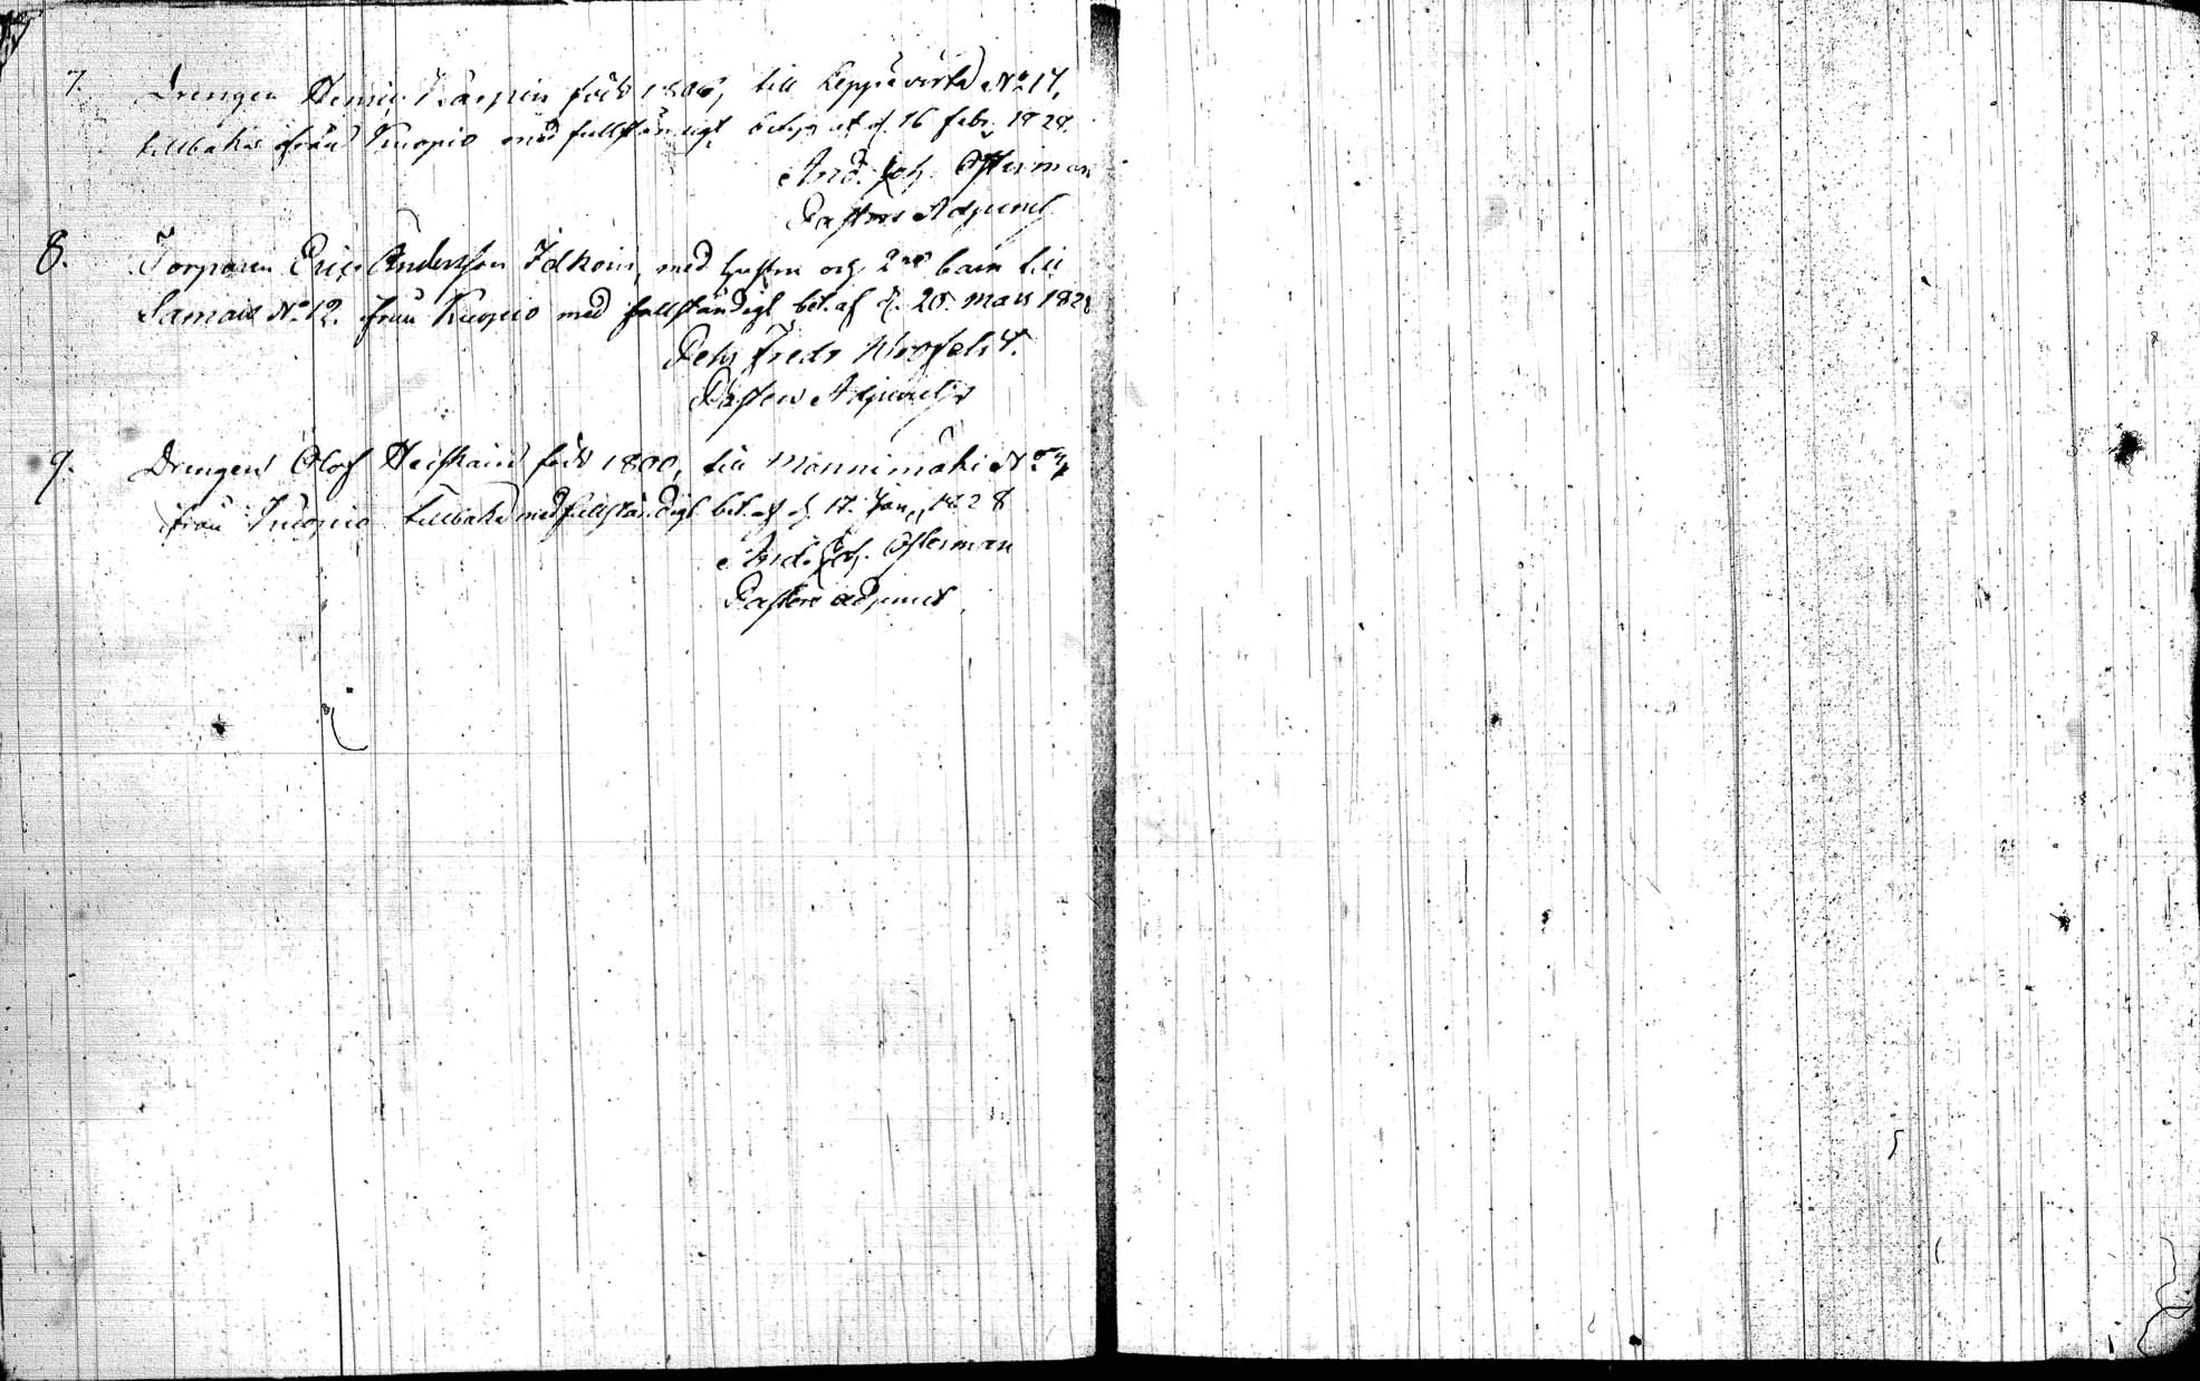 7. Drengen Henric Karpin född 1806, till Leppävirta No 17,
tillbaka från Kuopio med fullständigt betyg af d. 16 febr. 1828.
And. Joh. Osterman
Pastors Adjunct
8. Torparen Eric Andersson Idkoin, med hustru och 2ne barn till
Samais No 12. från Kuopio med fullständigt bet. af d. 20. Mars 1828
Pehr Fredr
Pastors Adjunct
9. Drengen Olof Heiskain född 1800, till Mannimäki No 4
från Kuopio tillbaka med fullständigt bet. af d. 17. Jan. 1828
And. Joh. Osterman
Pastors adjunct